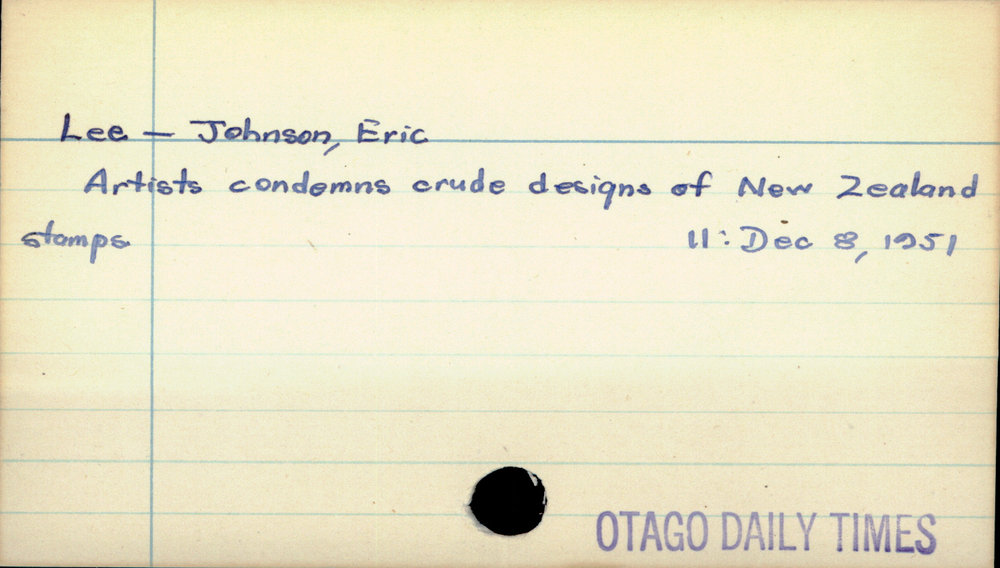 Lee - Johnson, Eric
Artists condemns crude designs of New Zealand
stamps 11: Dec 8, 1951
OTAGO DAILY TIMES